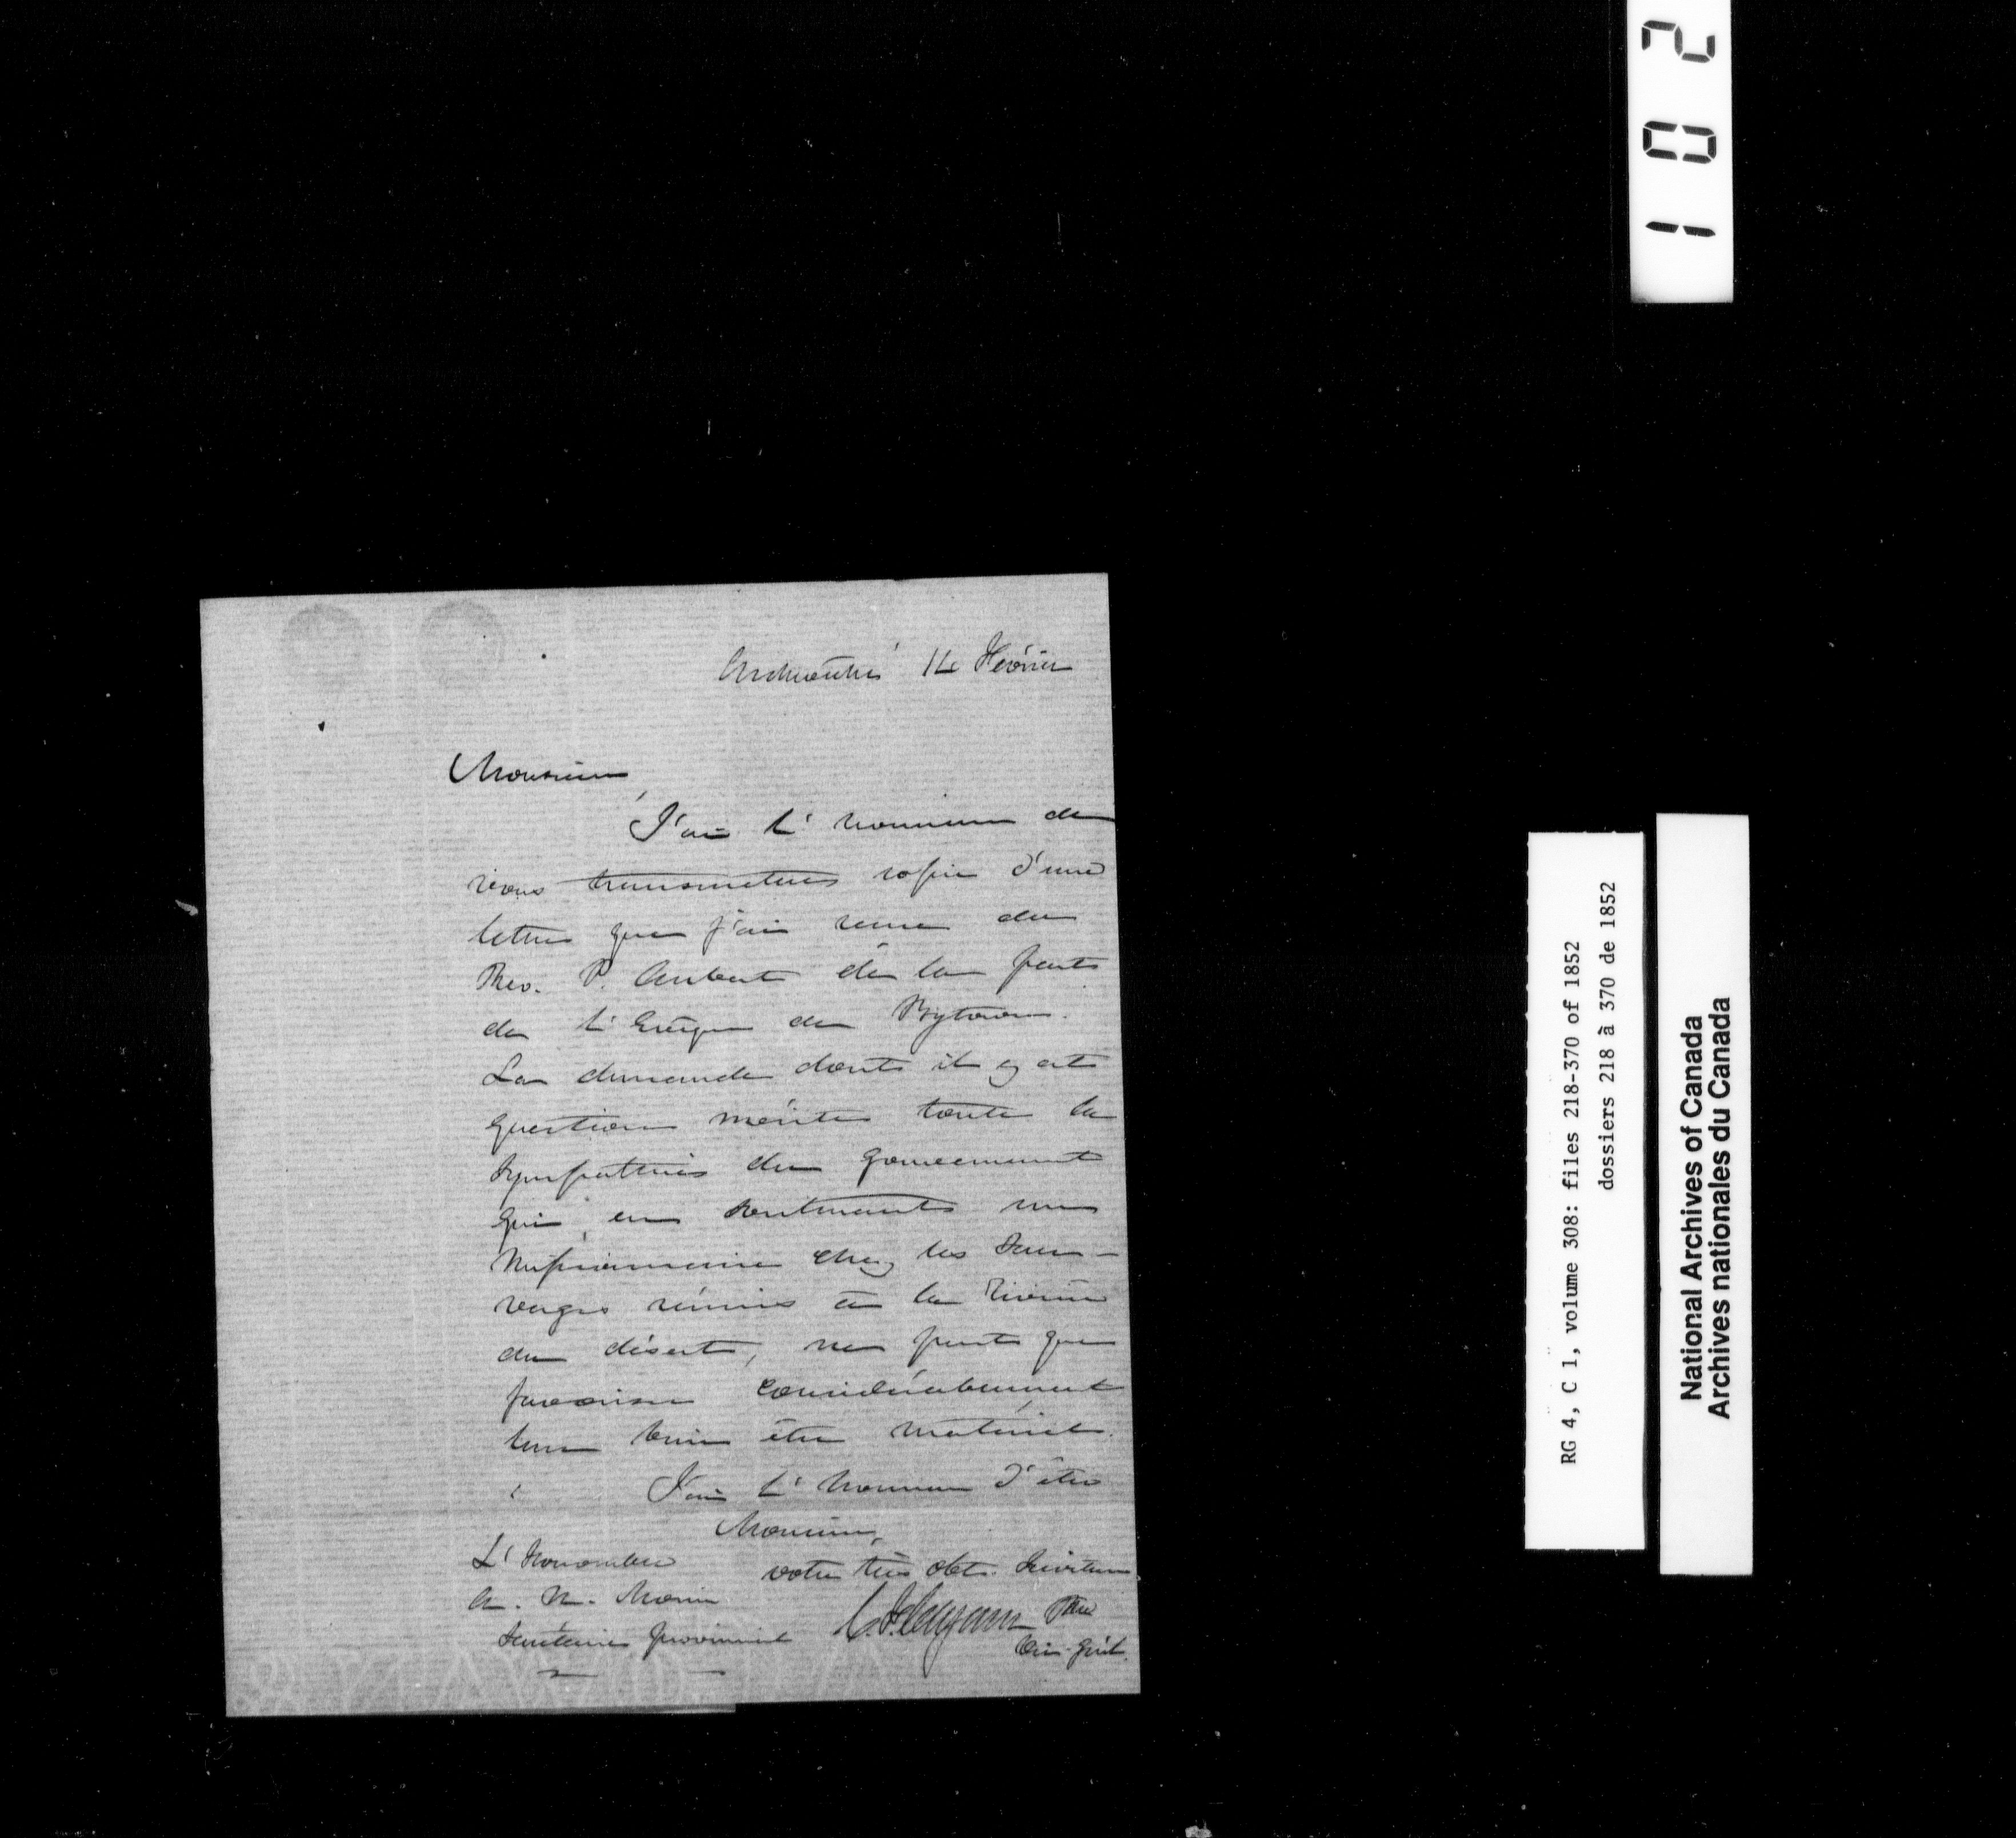 102
Archevêché 14 Février
Monsieur,
J'ai l'honneur de
vous transmettre copie d'une
lettre que j'ai reçue du
Rev. P. Aubert de la part
de l'Evêque de Bytown.
La demande dont il y est
question mérite toute la
sympathie du gouvernement
qui, en soutenant un
missionnaire chez les Sau-
vages réunis à la Rivière
du désert, ne peut que
favoriser considérablement
leur bien être matériel.
J'ai l'honneur d'être
Monsieur,
votre très obt. Serviteur
L'Honorable
A. N. Morin
Secrétaire provincial
Ptre
Vic. Génl.
RG 4, C 1, volume 308: files 218-370 of 1852
dossiers 218 à 370 de 1852
National Archives of Canada
Archives nationales du Canada